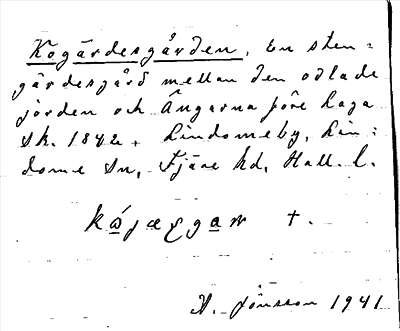 Kogärdesgården, En sten=
gärdesgård mellan den odlade
jorden och Ängarna före Laga
sk. 1842. Lindomeby, Lin=
dome sn, Fjäre hd, Hall. l.
†.
A. Jönsson 1941